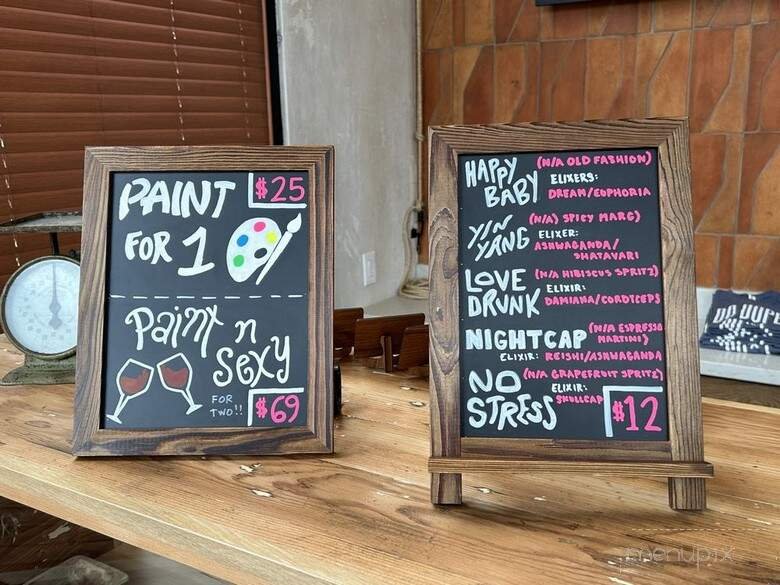 PAINT $25
FOR 1
Paint n
sexy
FOR
TWO!!
$69
HAPPY
BABY
(N/A OLD FASHION)
ELIXERS:
DREAM/EUPHORIA
YIN
YANG
(N/A) SPICY MARG)
ELIXER:
ASHWAGANDA/
SHATAVARI
LOVE
DRUNK
(N/A HIBISCUS SPRITZ)
ELIXIR:
DAMIANA/CORDYCEPS
NIGHTCAP
(N/A ESPRESSO
MARTINI)
ELIXIR: REISHI/ASHWAGANDA
NO
STRESS
(N/A GRAPEFRUIT SPRITZ)
ELIXIR:
SKULLCAP
$12
menupix